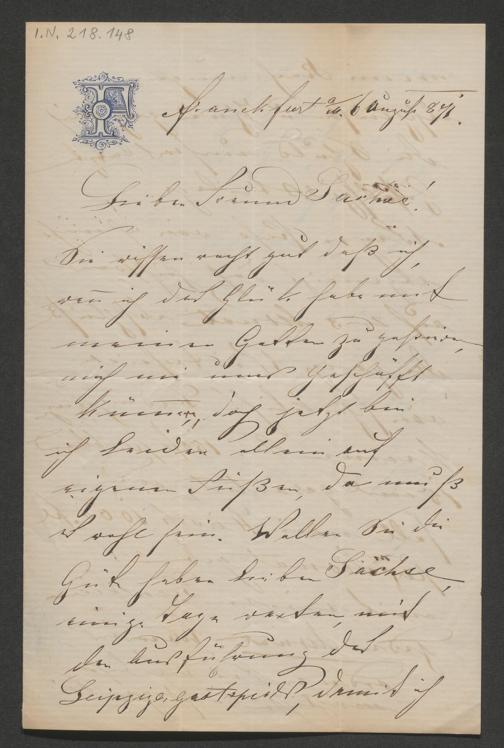 I.N. 218.148
F
Franckfurt a/M. 6 August 871.
Lieber Freund Sachse!
Sie wissen recht gut daß ich,
wenn ich das Glück habe mit
meinem Gatten zu gastiren,
mich nie ums Geschäft
kümmere, doch jetzt bin
ich leider allein auf
eigenen Füßen, da muß
es wohl sein. Wollen Sie die
Güte haben lieber Sachse,
einige Tage warten, mit
der Ausführung des
Leipziger gastspiels, damit ich